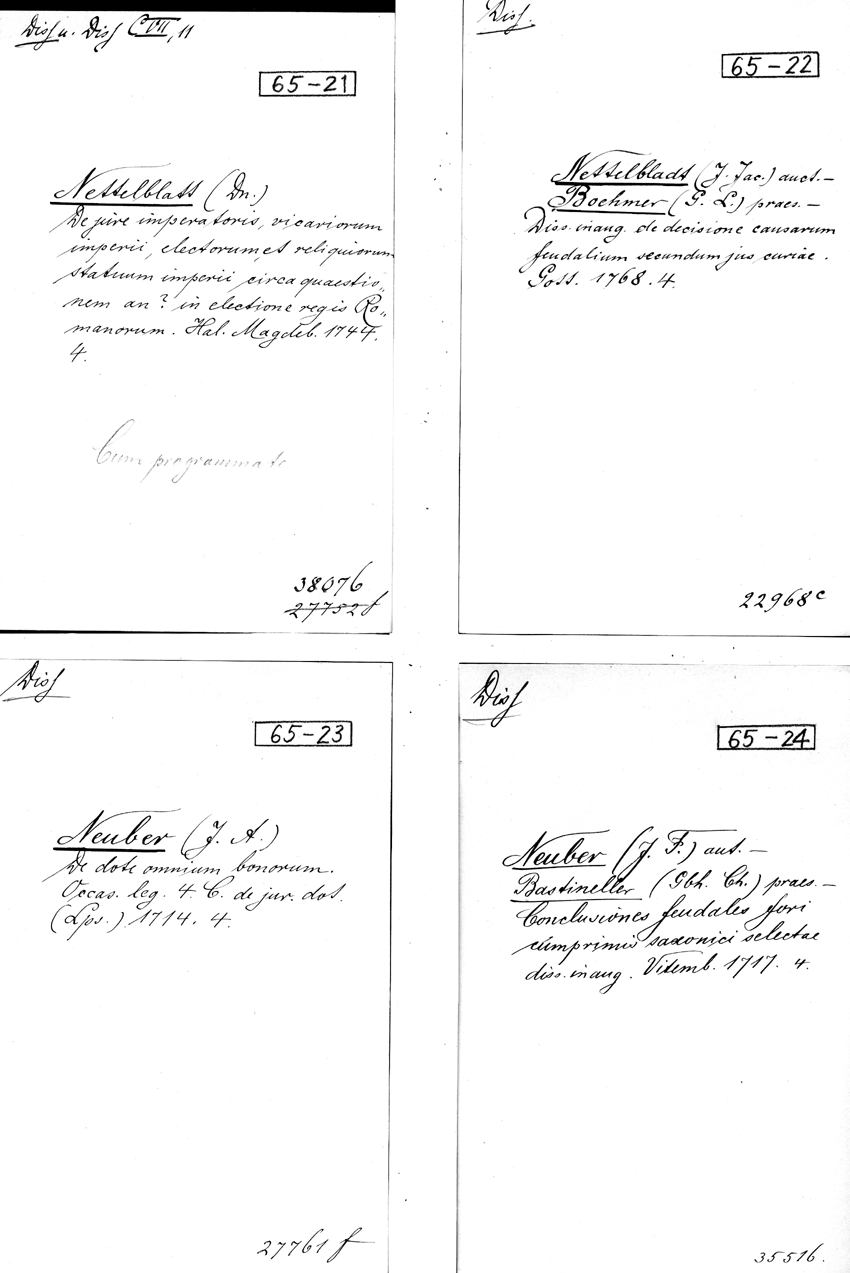 Diss u. Diss C VII, 11
65-21
Nettelblatt (Dn.)
De jure imperatoris, vicariorum
imperii, electorum, et reliquiorum
statuum imperii circa quaestio„
nem an? in electione regis Ro„
manorum. Hal. Magdeb. 1744.
4.
Cum programmate
38076
27752 f
Diss.
65-22
Nettelbladt (J. Jac.) auct. —
Boehmer (G. L.) praes. —
Diss. inaug. de decisione causarum
feudalium secundum jus curiae.
Gott. 1768. 4.
22968 c
Diss
65-23
Neuber (J. A.)
De dote omnium bonorum.
Occas. leg. 4. C. de jur. dot.
(Lps.) 1714. 4.
27761 f
Diss
65-24
Neuber (J. F.) aut. —
Bastineller (Gbh. Ch.) praes. —
Conclusiones feudales fori
cumprimis saxonici selectae
diss. inaug. Vitemb. 1717. 4.
35516.